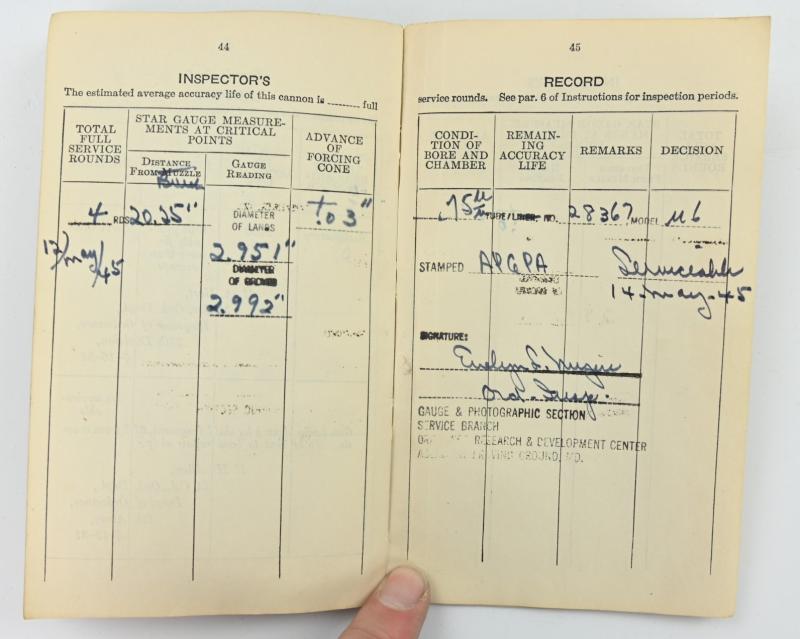 44
INSPECTOR'S
The estimated average accuracy life of this cannon is ........ full
TOTAL FULL SERVICE ROUNDS
STAR GAUGE MEASUREMENTS AT CRITICAL POINTS
DISTANCE FROM MUZZLE
GAUGE READING
ADVANCE OF FORCING CONE
4 RDS 20.25"
DIAMETER
OF LANDS
To 3"
17/may/45
2.951"
DIAMETER
OF GROOVES
2.992"
45
RECORD
service rounds. See par. 6 of Instructions for inspection periods.
CONDITION OF BORE AND CHAMBER
REMAINING ACCURACY LIFE
REMARKS
DECISION
75 m/m TUBE/LINER, NO. 28367 MODEL M6
STAMPED APGPA Serviceable
14-may-45
SIGNATURE:
Evelyn
Ord.
GAUGE & PHOTOGRAPHIC SECTION
SERVICE BRANCH
RESEARCH & DEVELOPMENT CENTER
PROVING GROUND, MD.